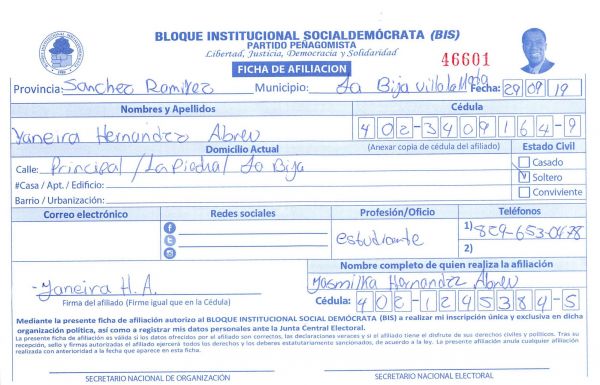 BLOQUE INSTITUCIONAL SOCIALDEMÓCRATA (BIS)
PARTIDO PEÑAGOMISTA
Libertad, Justicia, Democracia y Solidaridad
46601
FICHA DE AFILIACION
Provincia: Sanchez Ramirez Municipio: La Bija Villa la Mata Fecha: 29 09 19
Nombres y Apellidos Cédula
Yaneira Hernandez Abreu 402-3409164-9
Domicilio Actual (Anexar copia de cédula del afiliado) Estado Civil
Calle: Principal / La Piedra / La Bija Casado
#Casa / Apt. / Edificio: Soltero
Barrio / Urbanización: Conviviente
Correo electrónico Redes sociales Profesión/Oficio Teléfonos
estudiante 1) 829-653-0478
2)
Nombre completo de quien realiza la afiliación
Yaneira H.A. Yasmilka Hernandez Abreu
Firma del afiliado (Firme igual que en la Cédula) Cédula: 402-1295384-5
Mediante la presente ficha de afiliación autorizo al BLOQUE INSTITUCIONAL SOCIAL DEMÓCRATA (BIS) a realizar mi inscripción única y exclusiva en dicha
organización política, así como a registrar mis datos personales ante la Junta Central Electoral.
La presente ficha de afiliación es válida si los datos ofrecidos por el afiliado son correctos, las declaraciones veraces y si el afiliado tiene el disfrute de sus derechos civiles y políticos. Tras su
recepción, sello y firmas autorizadas el afiliado ejercerá todos los derechos y los deberes estatutariamente sancionados, de acuerdo a la ley. La presente afiliación anula cualquier afiliación
realizada con anterioridad a la fecha que aparece en esta ficha.
SECRETARIO NACIONAL DE ORGANIZACIÓN SECRETARIO NACIONAL ELECTORAL